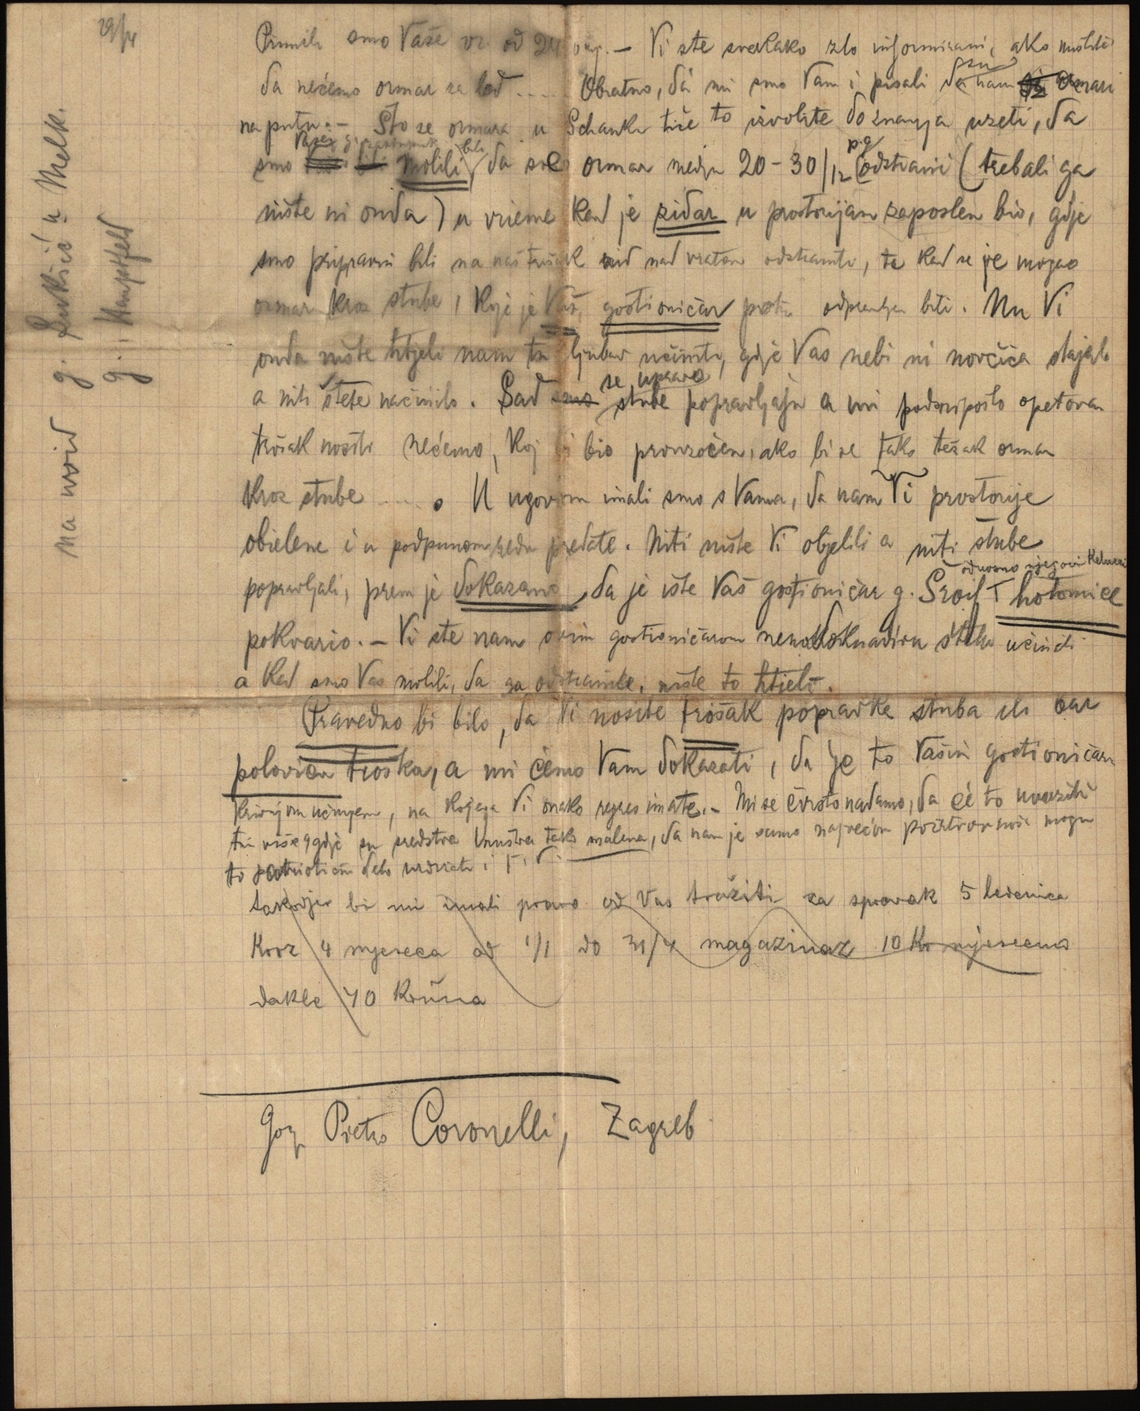 29/4
na uvid g. Lukšić u Melk.
g. Hauptfeld
Primili smo Vaše vr. od 24 o.mj. – Vi ste svakako zlo informirani, ako mislite
da nećemo ormar za led .... Obratno, da mi smo Vam i pisali da nam su ormari
na putu. – Što se ormara u Schanku tiče to izvolite do znanja uzeti, da
smo molili da se ormar medju 20–30/12 p.g. odstrani (trebali ga
niste ni onda) u vrieme kad je zidar u prostorijam zaposlen bio, gdje
smo pripravni bili na naš trošak zid nad vratom odstraniti, te kad se je mogao
ormar kroz stube, koje je Vaš gostioničar odpravljen biti. Nu Vi
onda niste htjeli nam tu ljubav učiniti, gdje Vas nebi ni novčića stajalo
a niti štete načinilo. Sad se upravo stube popravljaju a mi podnipošto opetovan
trošak nositi nećemo, koj bi bio prouzročen, ako bi se tako težak ormar
kroz stube .... . U ugovoru imali smo s Vama, da nam Vi prostorije
obielene i u podpunom redu predate. Niti niste Vi objelili a niti stube
popravljali, prem je dokazano, da je iste Vaš gostioničar g. odnosno njegovi hotomice
pokvario. – Vi ste nam ovim gostioničarom štetu učinili
a kad smo Vas molili, da ga odstranite, niste to htjeli.
Pravedno bi bilo, da Vi nosite trošak popravke stuba ili bar
polovicu troška, a mi ćemo Vam dokazati, da je to Vašim gostioničarom
krivnjom učinjeno, na kojega Vi onako regres imate. – Mi se čvrsto nadamo, da će to uvažiti
tim više gdje su sredstva društva tako malena, da nam je samo najvećom požrtvovnosti mogu
to patriotično delo uzdržati i t. d.
Takodjer bi mi imali pravo od Vas tražiti za spravak 5 ledenica
kroz 4 mjeseca od 1/1 do 31/4 magazinaž 10 Kr mjesečno
dakle 40 kruna
Gosp. Pietro Coronelli, Zagreb